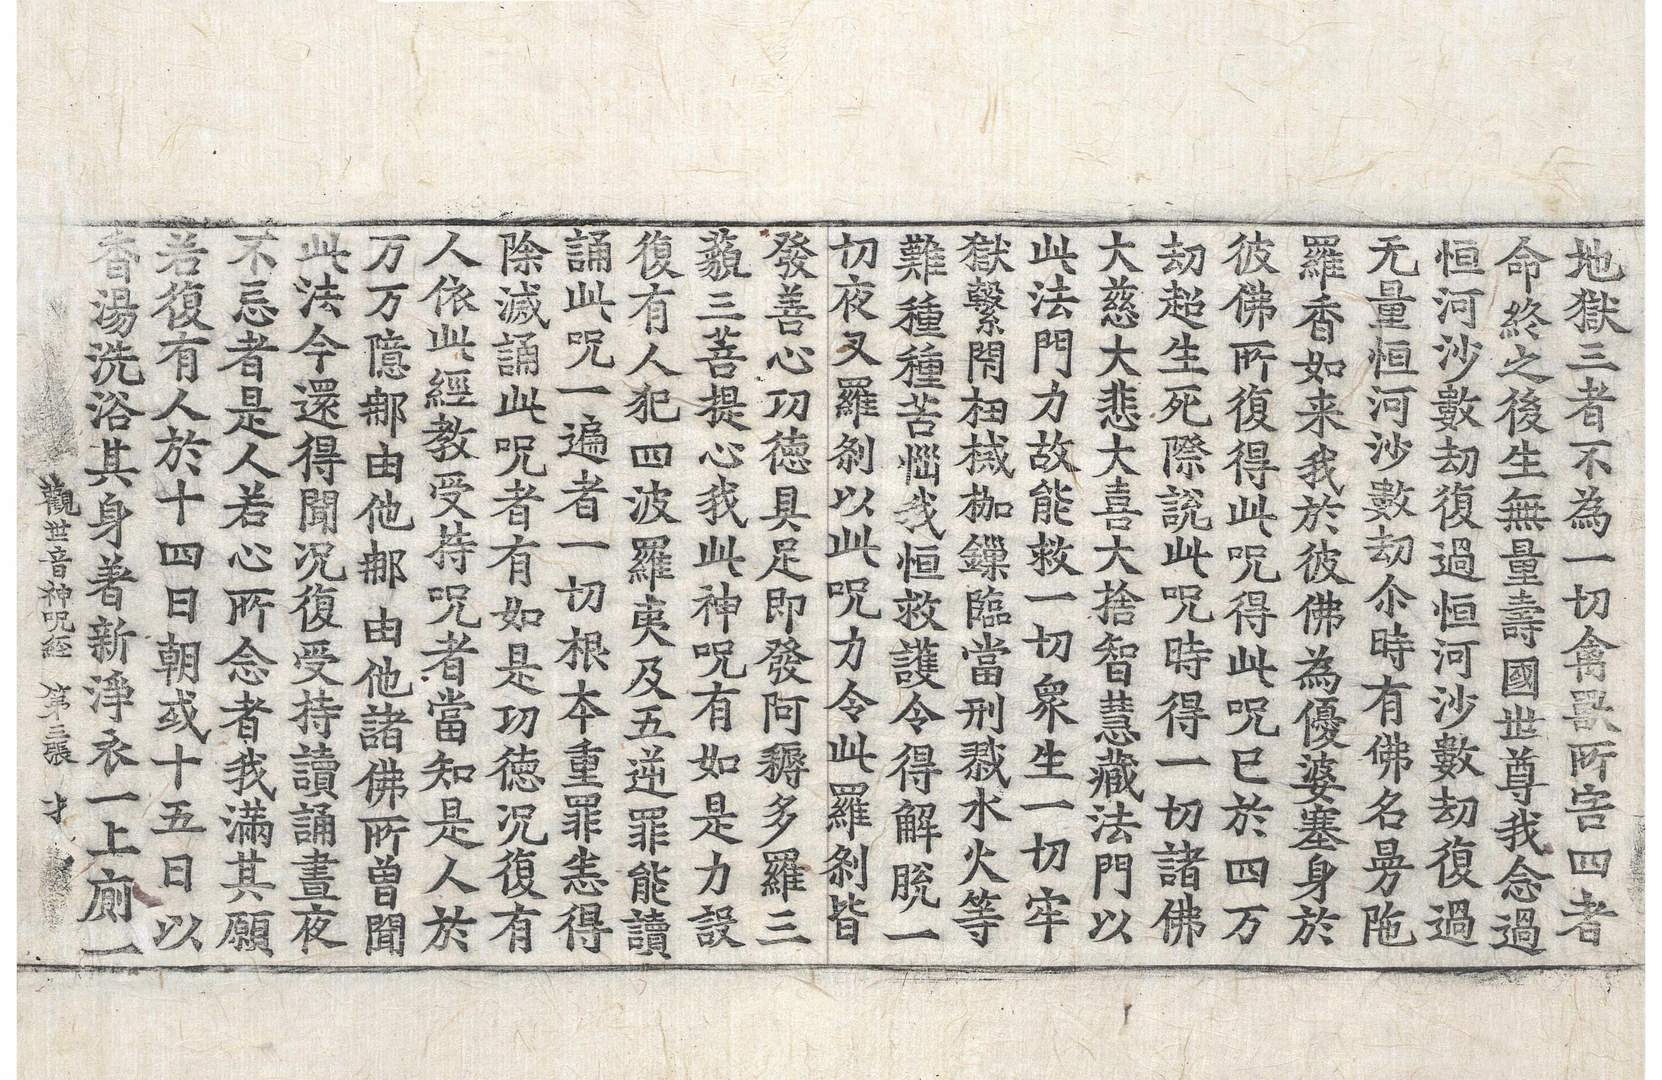 地獄三者不為一切禽獸所害四者
命終之後生無量壽國世尊我念過
恒河沙數劫復過恒河沙數劫復過
无量恒河沙數劫尒時有佛名曼陁
羅香如来我於彼佛為優婆塞身於
彼佛所復得此呪得此呪已於四万
劫超生死際說此呪時得一切諸佛
大慈大悲大喜大捨智慧藏法門以
此法門力故能救一切衆生一切牢
獄繫閇杻械枷鏁臨當刑戮水火等
難種種苦惱我恒救護令得解脫一
切夜叉羅剎以此呪力令此羅剎皆
發善心功德具足即發阿耨多羅三
藐三菩提心我此神呪有如是力設
復有人犯四波羅夷及五逆罪能讀
誦此呪一遍者一切根本重罪恙得
除滅誦此呪者有如是功德况復有
人依此經教受持呪者當知是人於
万万億那由他那由他諸佛所曽聞
此法今還得聞况復受持讀誦晝夜
不忘者是人若心所念者我滿其願
若復有人於十四日朝或十五日以
香湯洗浴其身著新淨衣一上廁一
觀世音神呪經 第三張 才